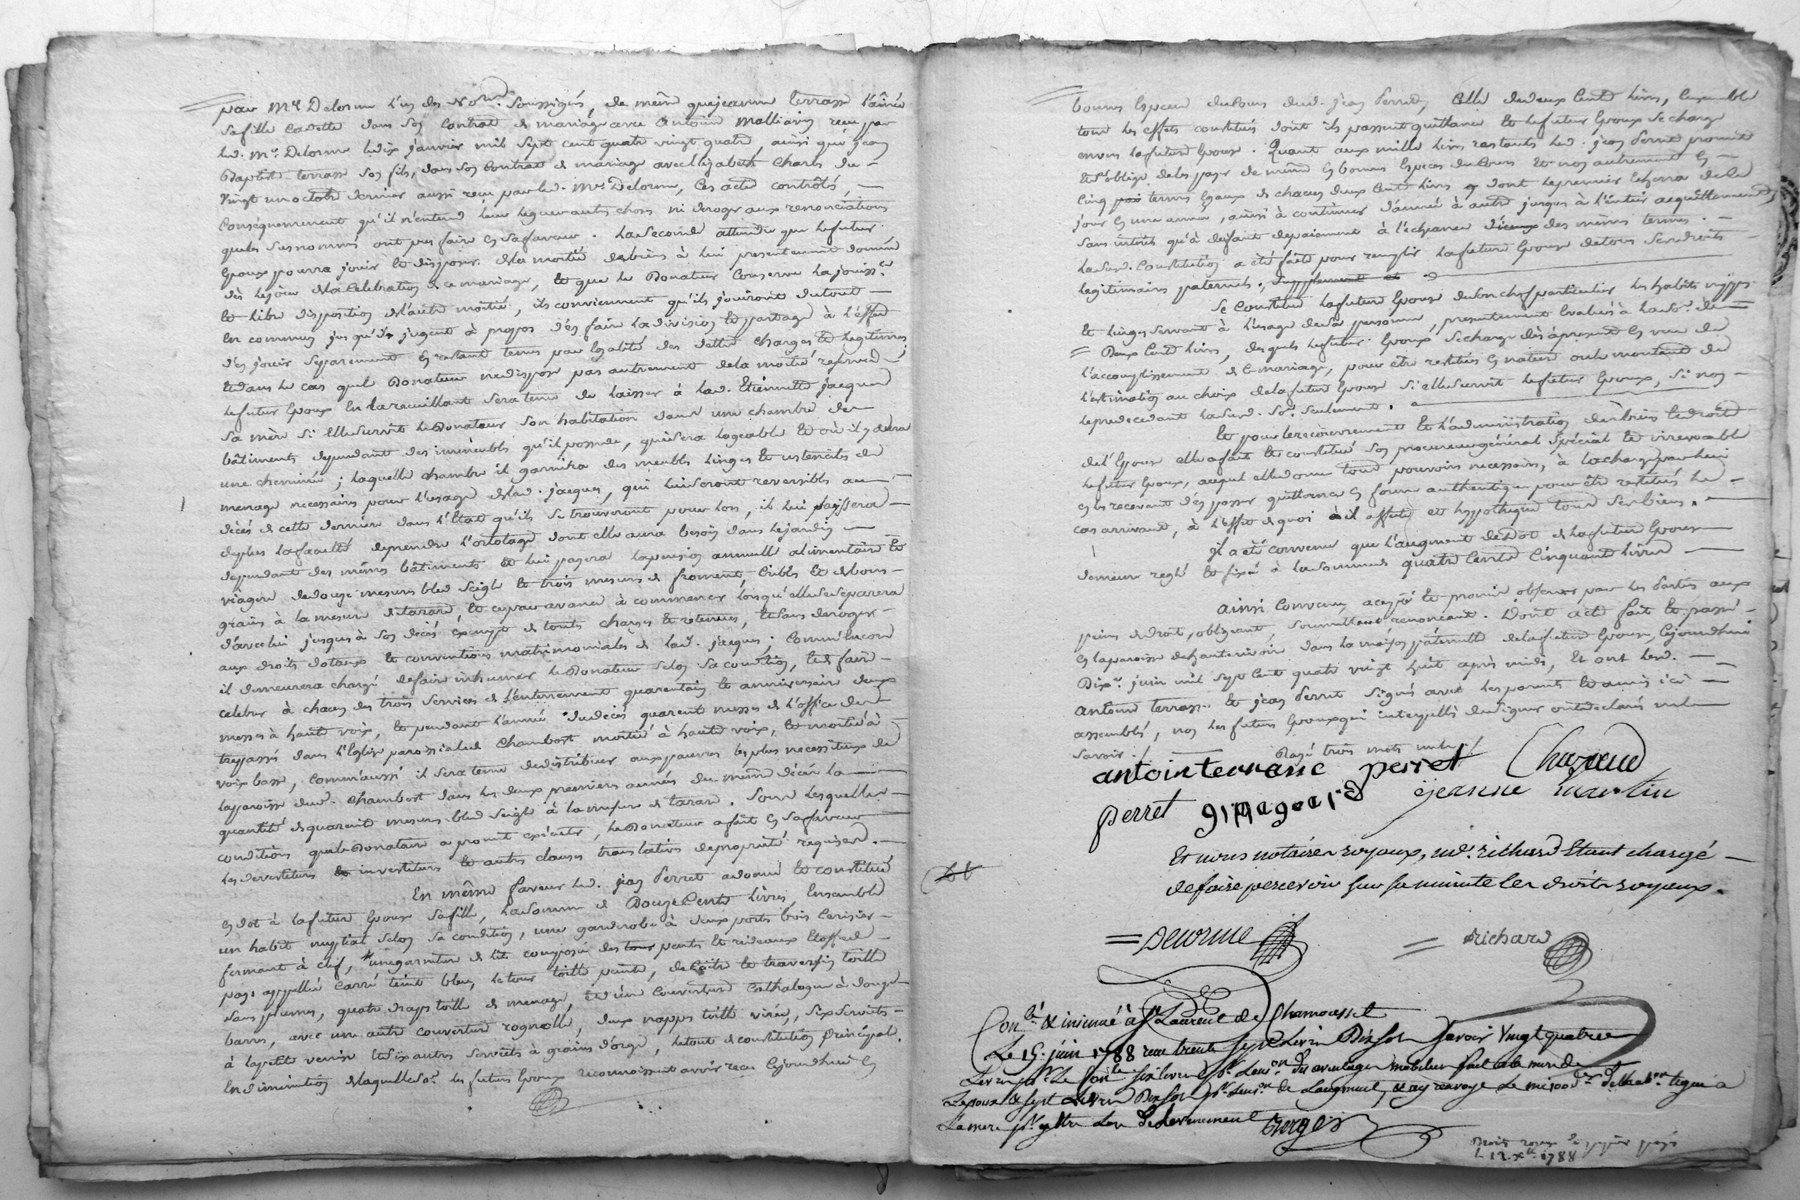 par Mre Delorme l'un des Nores soussignés, de même que jeanne terrasse l'ainée
sa fille cadette dans son contrat de mariage avec antoine Malliavin reçu par
led. Me Delorme le dix janvier mil sept cent quatre vingt quatre, ainsi que jean
Baptiste terrasse son fils, dans son contrat de mariage avec Elizabeth Charle du
vingt un octobre dernier aussi reçu par led. Mre Delorme, ces actes contrôlés,
conséquemment qu'il n'entend leur leguer autre chose ni deroger aux renonciations
que les susnommés ont pu faire en sa faveur. La seconde attendu que le futur
Epoux pourra jouir et disposer de la moitié des biens à lui presentement donnée
dès le jour de la celebration de ce mariage, et que le Donateur conserve la jouissce
et libre disposition de l'autre moitié, ils conviennent qu'ils jouiront du tout
en commun jusqu'ils jugent à propos d'en faire la division et partage à l'effet
d'en jouir separement en restant tenus par égalité des dettes charges et legitimes
et dans le cas que le Donateur ne dispose pas autrement de la moitié reservée
le futur Epoux en la recueillant sera tenu de laisser à lad. Etiennette jacquet
sa mère si elle survit le Donateur son habitation dans une chambre des
bâtiments dependant des immeubles qu'il possede, qui sera logeable et où il y aura
une cheminée; laquelle chambre il garnira des meubles linges et ustenciles de
menage necessaires pour l'usage de lad. jacques, qui lui seront reversibles au
décès de cette derniere dans l'état qu'ils se trouveront pour lors, il lui laissera
de plus la faculté de prendre l'ortolage dont elle aura besoin dans le jardin
dependant des mêmes bâtiments et lui payera la pension annuelle alimentaire et
viagere de douze mesures bled seigle et trois mesures de froment, criblés et de bons
grains à la mesure de tarare, et ce par avance à commencer lorsqu'elle se separera
d'avec lui jusques à son décès exempte de toutes charges et retenues, et sans deroger
aux droits dotaux et conventions matrimoniales de lad. jacques; comm'encor
il demeurera chargé de faire inhumer le Donateur selon sa condition, et de faire
celebrer à chacun des trois services de l'enterrement quarantain et anniversaire deux
messes à haute voix, et pendant l'année du décès quarente messes de l'office des
trepassés dans l'Eglise paroissiale de Chambost moitié à haute voix, et moitié à
voix basse, comm'aussi il sera tenu de distribuer aux pauvres les plus necessiteux de
la paroisse dud. Chambost dans les deux premieres années du même décès la
quantité de quarente mesures bled seigle à la mesure de tarare. Sous lesquelles
conditions que le Donataire a promit executer, le Donateur a fait en sa faveur
les devestitures et investitures et autres clauses translatives de propriété requises.
En même faveur led. jean Perret a donné et constitué
en dot à la future Epouse sa fille, la somme de Douze cents livres, Ensemble
un habit nuptial selon sa condition, une garderobe à deux portes bois cerisier
fermant à clef, une garniture de lit composée des tour pentes et rideaux etoffe de
pays appellée carré teint bleu, le tour toille peinte, de coitre et traversin toille
sans plumes, quatre draps toille de menage, et d'une couverture cathalogne à douze
barres, avec une autre couverture rognolle, deux nappes toille virée, six serviettes
à la petite venise et six autres serviettes à grains d'orge, le tout de constitution principal.
en diminution de laquelle So. les futurs Epoux reconnoissent avoir reçu cejourdhui en
bonnes Especes du cours dud. jean Perret, celle de deux cents livres, ensemble
tous les effets constitués dont ils passent quittance et le futur Epoux se charge
envers la future Epouse. Quant aux mille livres restantes led. jean Perret promet
et s'oblige de les payer de même en bonnes Especes du cours et non autrement en
cinq termes égaux de chacun deux cents livres dont le premier echerra de ce
jour en une année, ainsi à continuer d'année à autre jusques à l'entier acquittement
sans interets qu'à deffaut de paiement à l'echeance des mêmes termes.
Lasusd. constitution a été faite pour remplir la future Epouse de tous ses droits
legitimaires paternels.
Se constitue la future Epouse de son chef particulier les habits nippes
et linges servant à l'usage de sa personne, presentement evalués à la so. de
Deux cents livres, desquels le futur Epoux se charge dès àpresent en vue de
l'accomplissement de ce mariage, pour être restitués en nature ou le montant de
l'estimation au choix de la future Epouse si elle survit le futur Epoux, si non
le predecedant lasusd. So. seulement.
Et pour le recouvrement et l'administration des biens et droits
de l'Epouse elle a fait et constitué son procureur général spécial et irrevocable
le futur Epoux, auquel elle donne tous pouvoirs necessaires, à la charge par lui
en les recevant d'en passer quittance en forme authentique pour être restitués le
cas arrivant, à l'effet de quoi il affecte et hypotheque tous ses biens.
Il a été convenu que l'augment de dot de la future Epouse
demeure reglé et fixé à la somme de quatre cents cinquante livres
ainsi convenu, accepté et promis observer par les parties aux
peines de droit, obligeant soumettant renonceant. Dont acte fait et passé
en la paroisse de hauterivoire dans la maison paternelle de la future Epouse, cejourdhui
Dixe juin mil sept cent quatre vingt huit après midi, Et ont led.
antoine terrasse et jean Perret signé avec les parents et amis ici
assemblés, non les futurs Epoux qui interpellés de signer ont declaré ne le
savoir. Rayé trois mots nuls
antointerrasse perret Chazaud
perret jeanne martin
Et nous notaires royaux, md. richard étant chargé
de faire percevoir sur sa minute les droits royaux.
Delorme richard
Conlé & insinué à St Laurent de Chamousset
Le 15. juin 1788 reçu trente sept Livres Dix sols savoir vingt quatre
Livres pr Le Conlle six livres pr Linson des avantages mobiliers fait à la mere de
Lepoux & sept Livres Dix sols pr Linson de Laugment, &
Lamere Lors de Levenement
Droits 
L 12. Xbre 1788